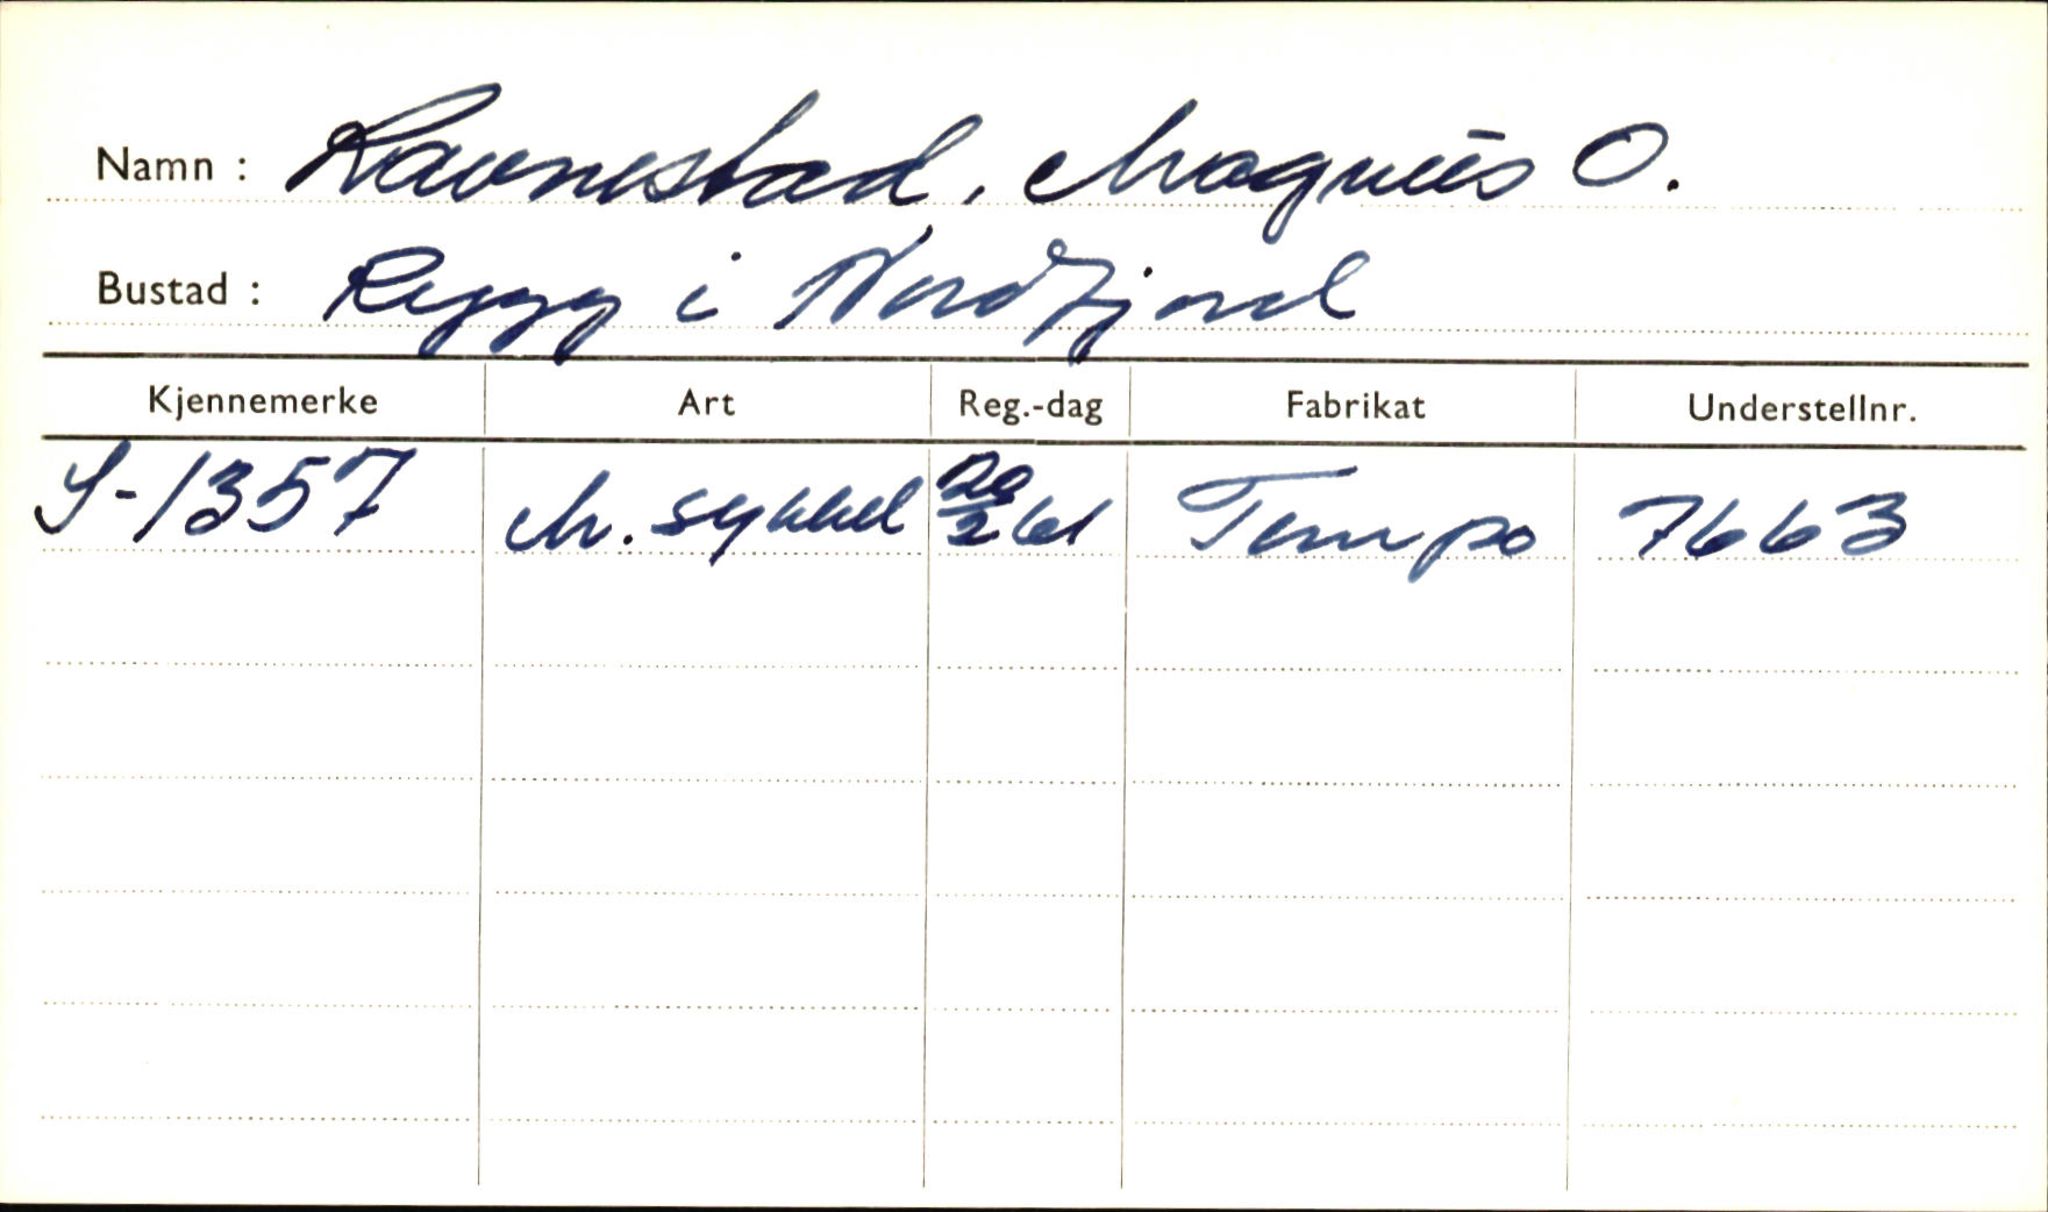 Namn : Ravnestad, Magnus O.
Bustad : Rygg i Nordfjord
Kjennemerke Art Reg.-dag Fabrikat Understellnr.
S-1357 M. sykkel 20/2 61 Tempo 7663